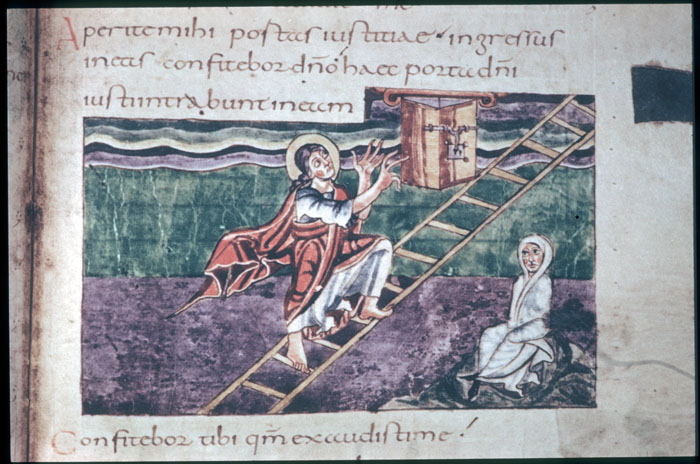 Aperite mihi portas iustitiae · ingressus
in eas confitebor dn̄o haec porta dn̄i
iusti intrabunt in eam
Confitebor tibi qm̄ exaudisti me